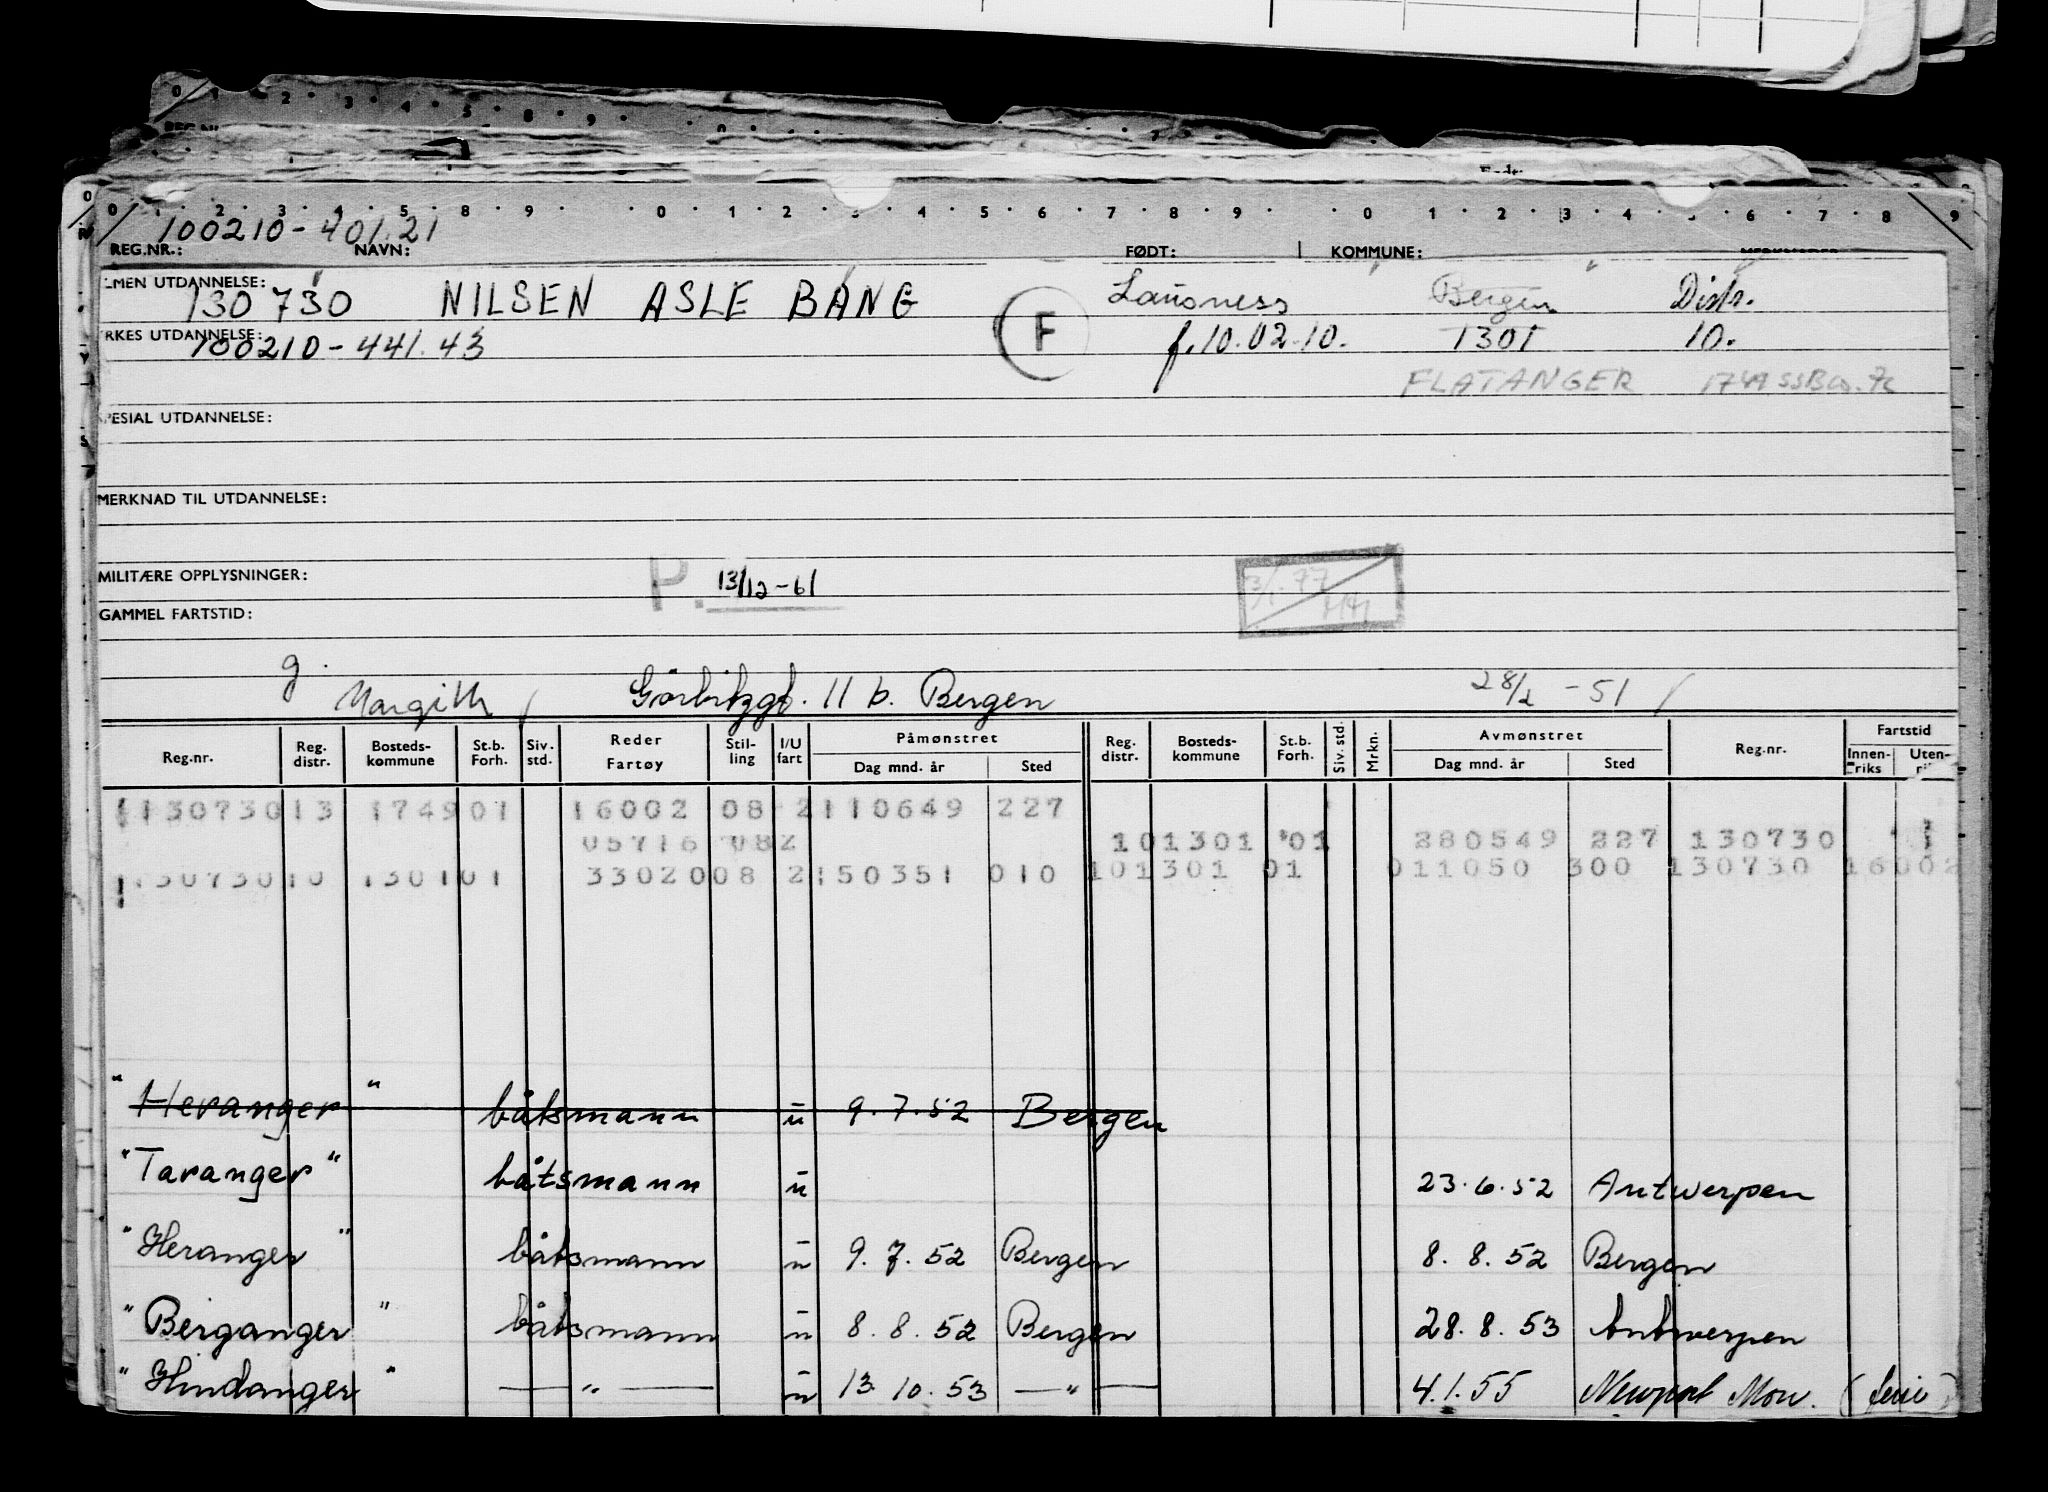 0 1 2 3 4 5 8 9
Født:
0 1 2 3 4 5 8 9 0 1 2 3 4 5 6 7 8 9 0 1 2 3 4 5 6 7 8 9
100210-401.21
REG.NR.: NAVN: FØDT: KOMMUNE:
MEN UTDANNELSE:
130730 NILSEN ASLE BANG F Lausness Bergen Distr.
RKES UTDANNELSE:
100210-441.43 f. 10.02.10. 1301 10.
FLATANGER 1749
ESIAL UTDANNELSE:
MERKNAD TIL UTDANNELSE:
MILITÆRE OPPLYSNINGER: P. 13/12-61 3/1.77
GAMMEL FARTSTID:
g. Margith Görbitzgt. 11 b. Bergen 28/2-51
Reg.nr. Reg. distr. Bosteds-kommune St.b. Forh. Siv. std. Reder Fartøy Stil-ling I/U fart Påmønstret Dag mnd. år Sted Reg. distr. Bosteds-kommune St.b. Forh. Siv. std. Mrkn. Avmønstret Dag mnd. år Sted Reg.nr. Fartstid Innen-riks Uten-
130730 13 1749 01 16002 08 2 110649 227
05716 08 2 10 1301 01 280549 227 130730
130730 10 1301 01 33020 08 2 150351 010 10 1301 01 011050 300 130730 16002
"Heranger" båtsmann u 9.7.52 Bergen
"Taranger" båtsmann u 23.6.52 Antwerpen
"Heranger" båtsmann u 9.7.52 Bergen 8.8.52 Bergen
"Berganger" båtsmann u 8.8.52 Bergen 28.8.53 Antwerpen
"Hindanger" — " — u 13.10.53 — " — 4.1.55 Newport Mon. (ferie)